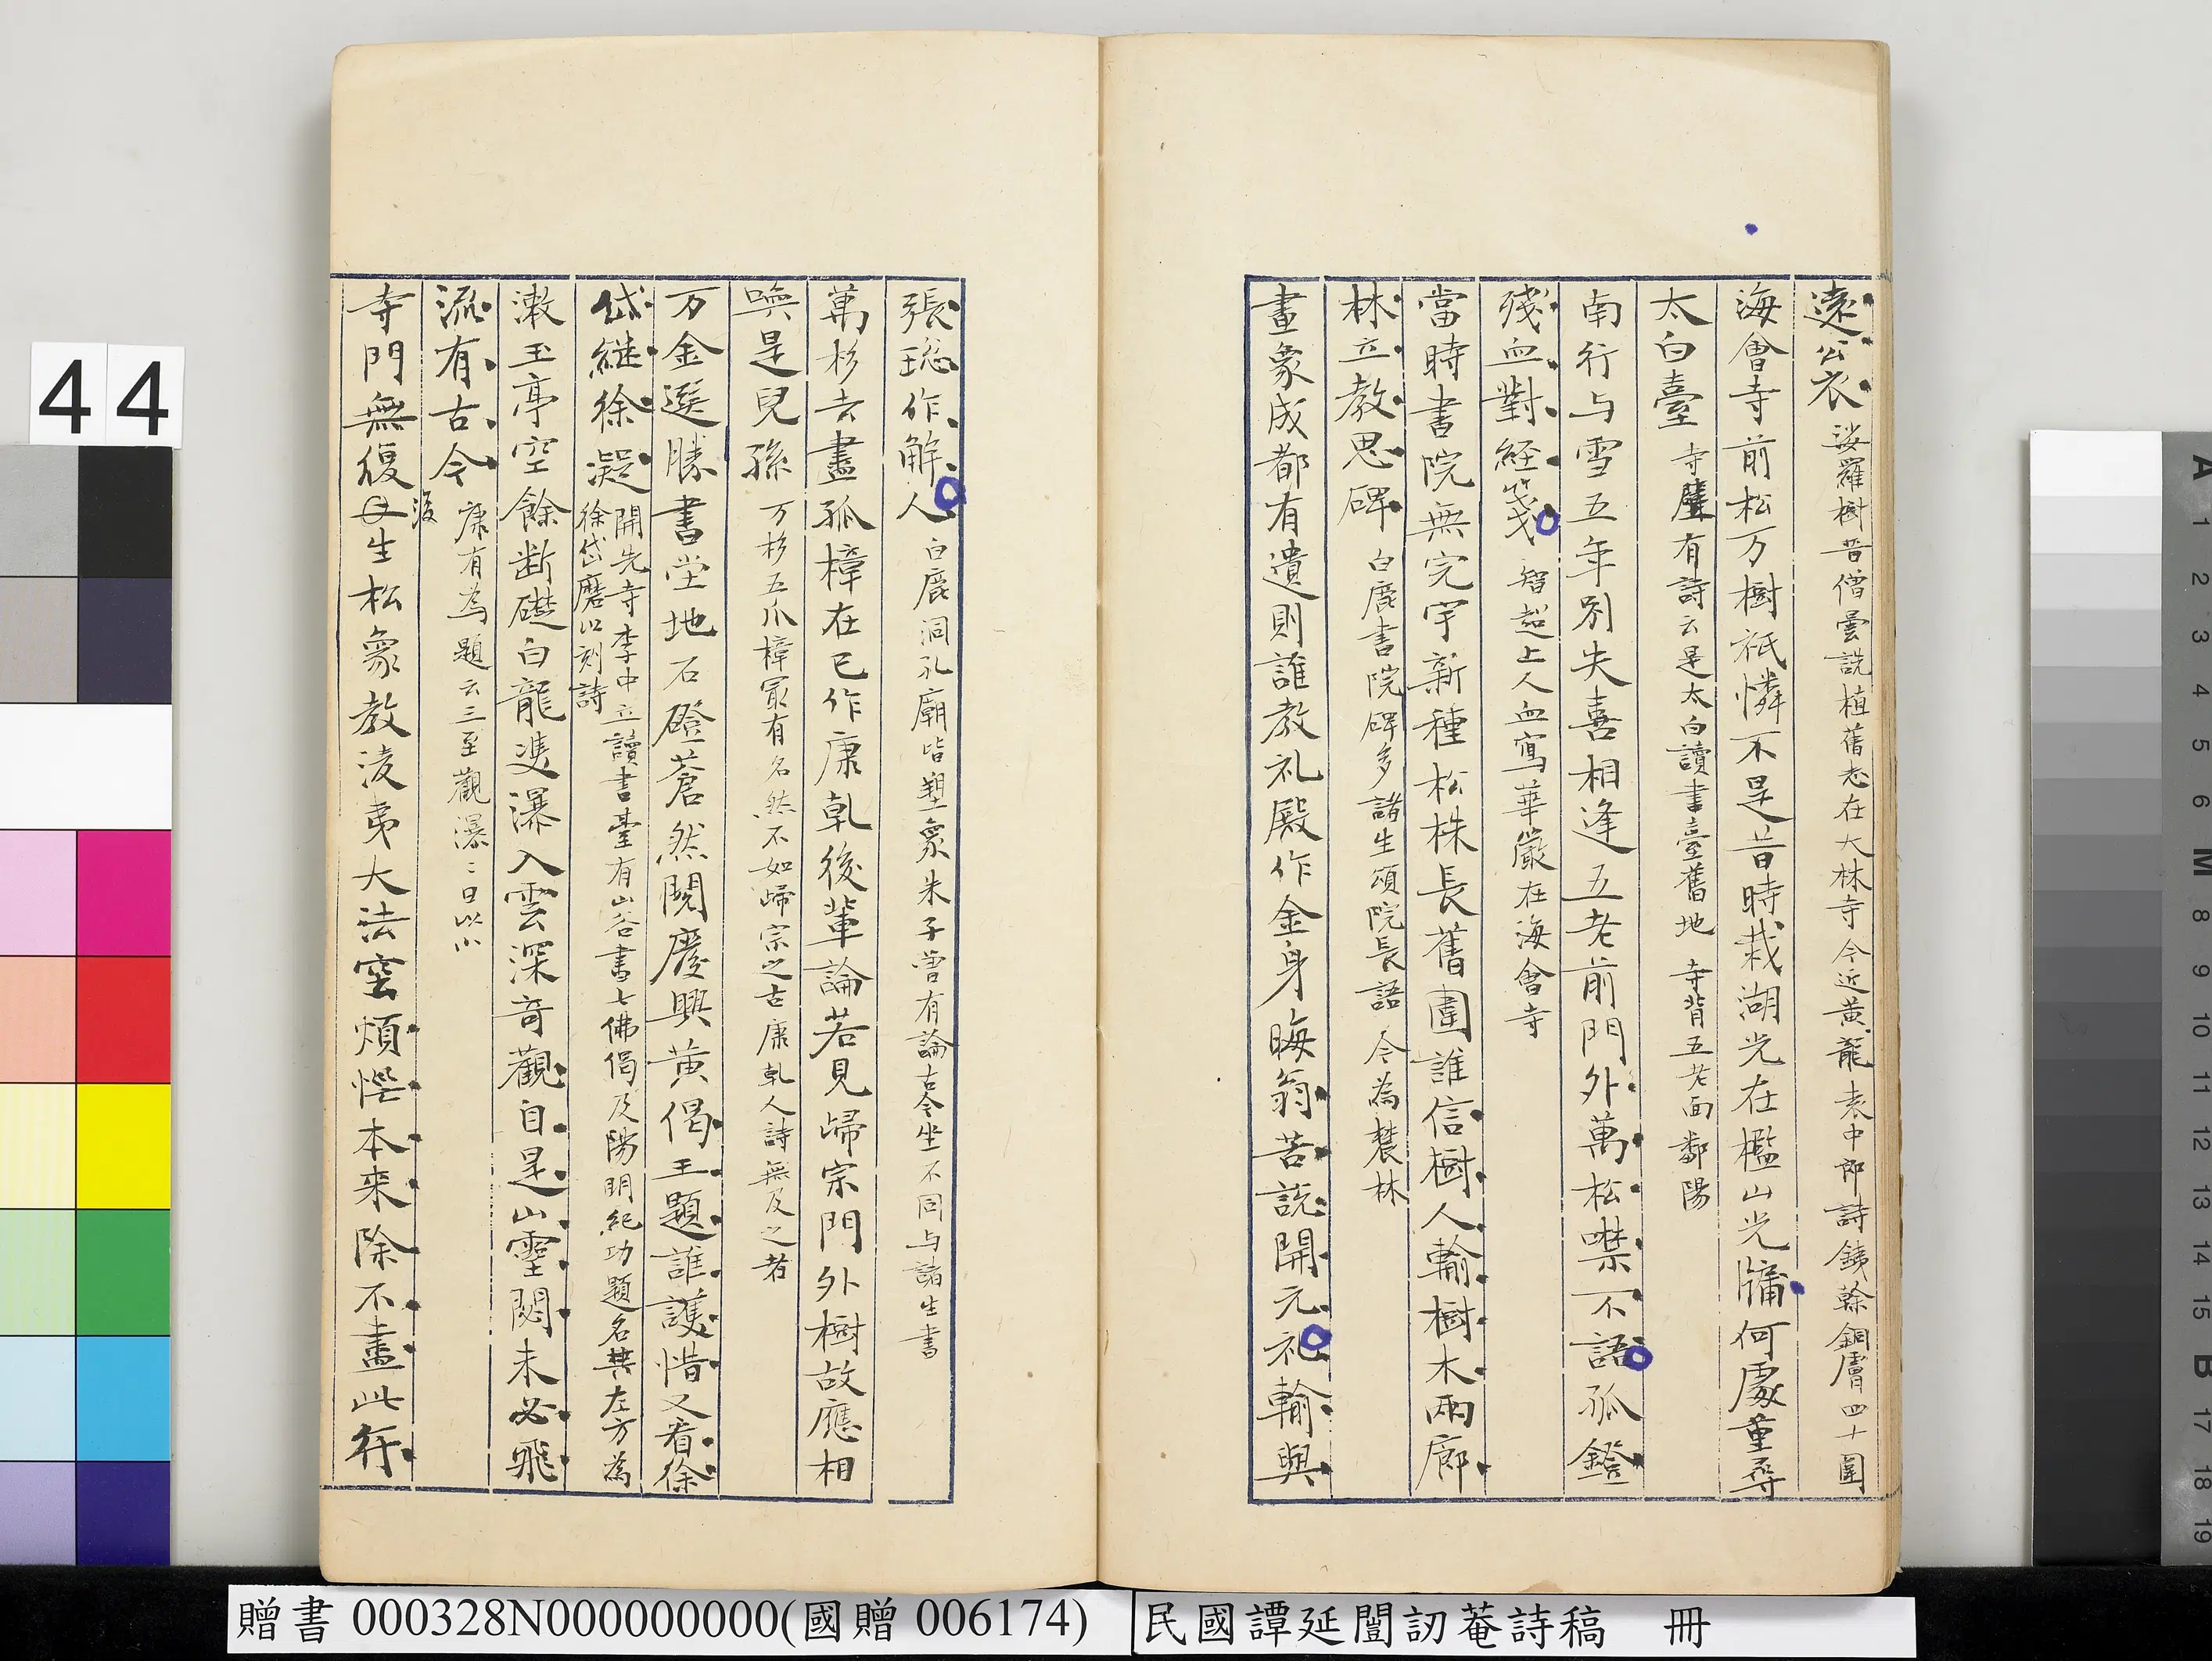 遠公衣 娑羅樹昔僧曇詵植舊志在大林寺今近黃龍袁中郎詩鐵榦銅膚四十圍
海會寺前松万樹祇憐不是昔時栽湖光在檻山光牖何處重尋
太白臺 寺壁有詩云是太白讀書臺舊地 寺背五老面鄱陽
南行与雪五年別失喜相逢五老前門外萬松噤不語孤鐙
殘血對經箋 智超上人血寫華嚴在海會寺
當時書院無完宇新種松株長舊圍誰信樹人輸樹木兩廊
林立教思碑 白鹿書院碑多諸生頌院長語 今為農林
畫象成都有遺則誰教礼殿作金身晦翁苦說開元礼輸與
張璁作解人 白鹿洞孔廟皆塑象朱子曾有論古今坐不同与諸生書
萬杉去盡孤樟在已作康乾後輩論若見歸宗門外樹故應相
喚是兒孫 万杉五爪樟冣有名然不如歸宗之古康乾人詩無及之者
万金選勝書堂地石磴蒼然閱廢興黃偈王題誰護惜又看徐
岱継徐凝 開先寺李中立讀書臺有山谷書七佛偈及陽明紀功題名其左方為
徐岱磨以刻詩
漱玉亭空餘断礎白龍雙瀑入雲深奇觀自是山靈閟未必飛
流有古今 康有為題云三至觀瀑瀑日以小
寺門無復母生松象教淩夷大法空煩惱本来除不盡此行